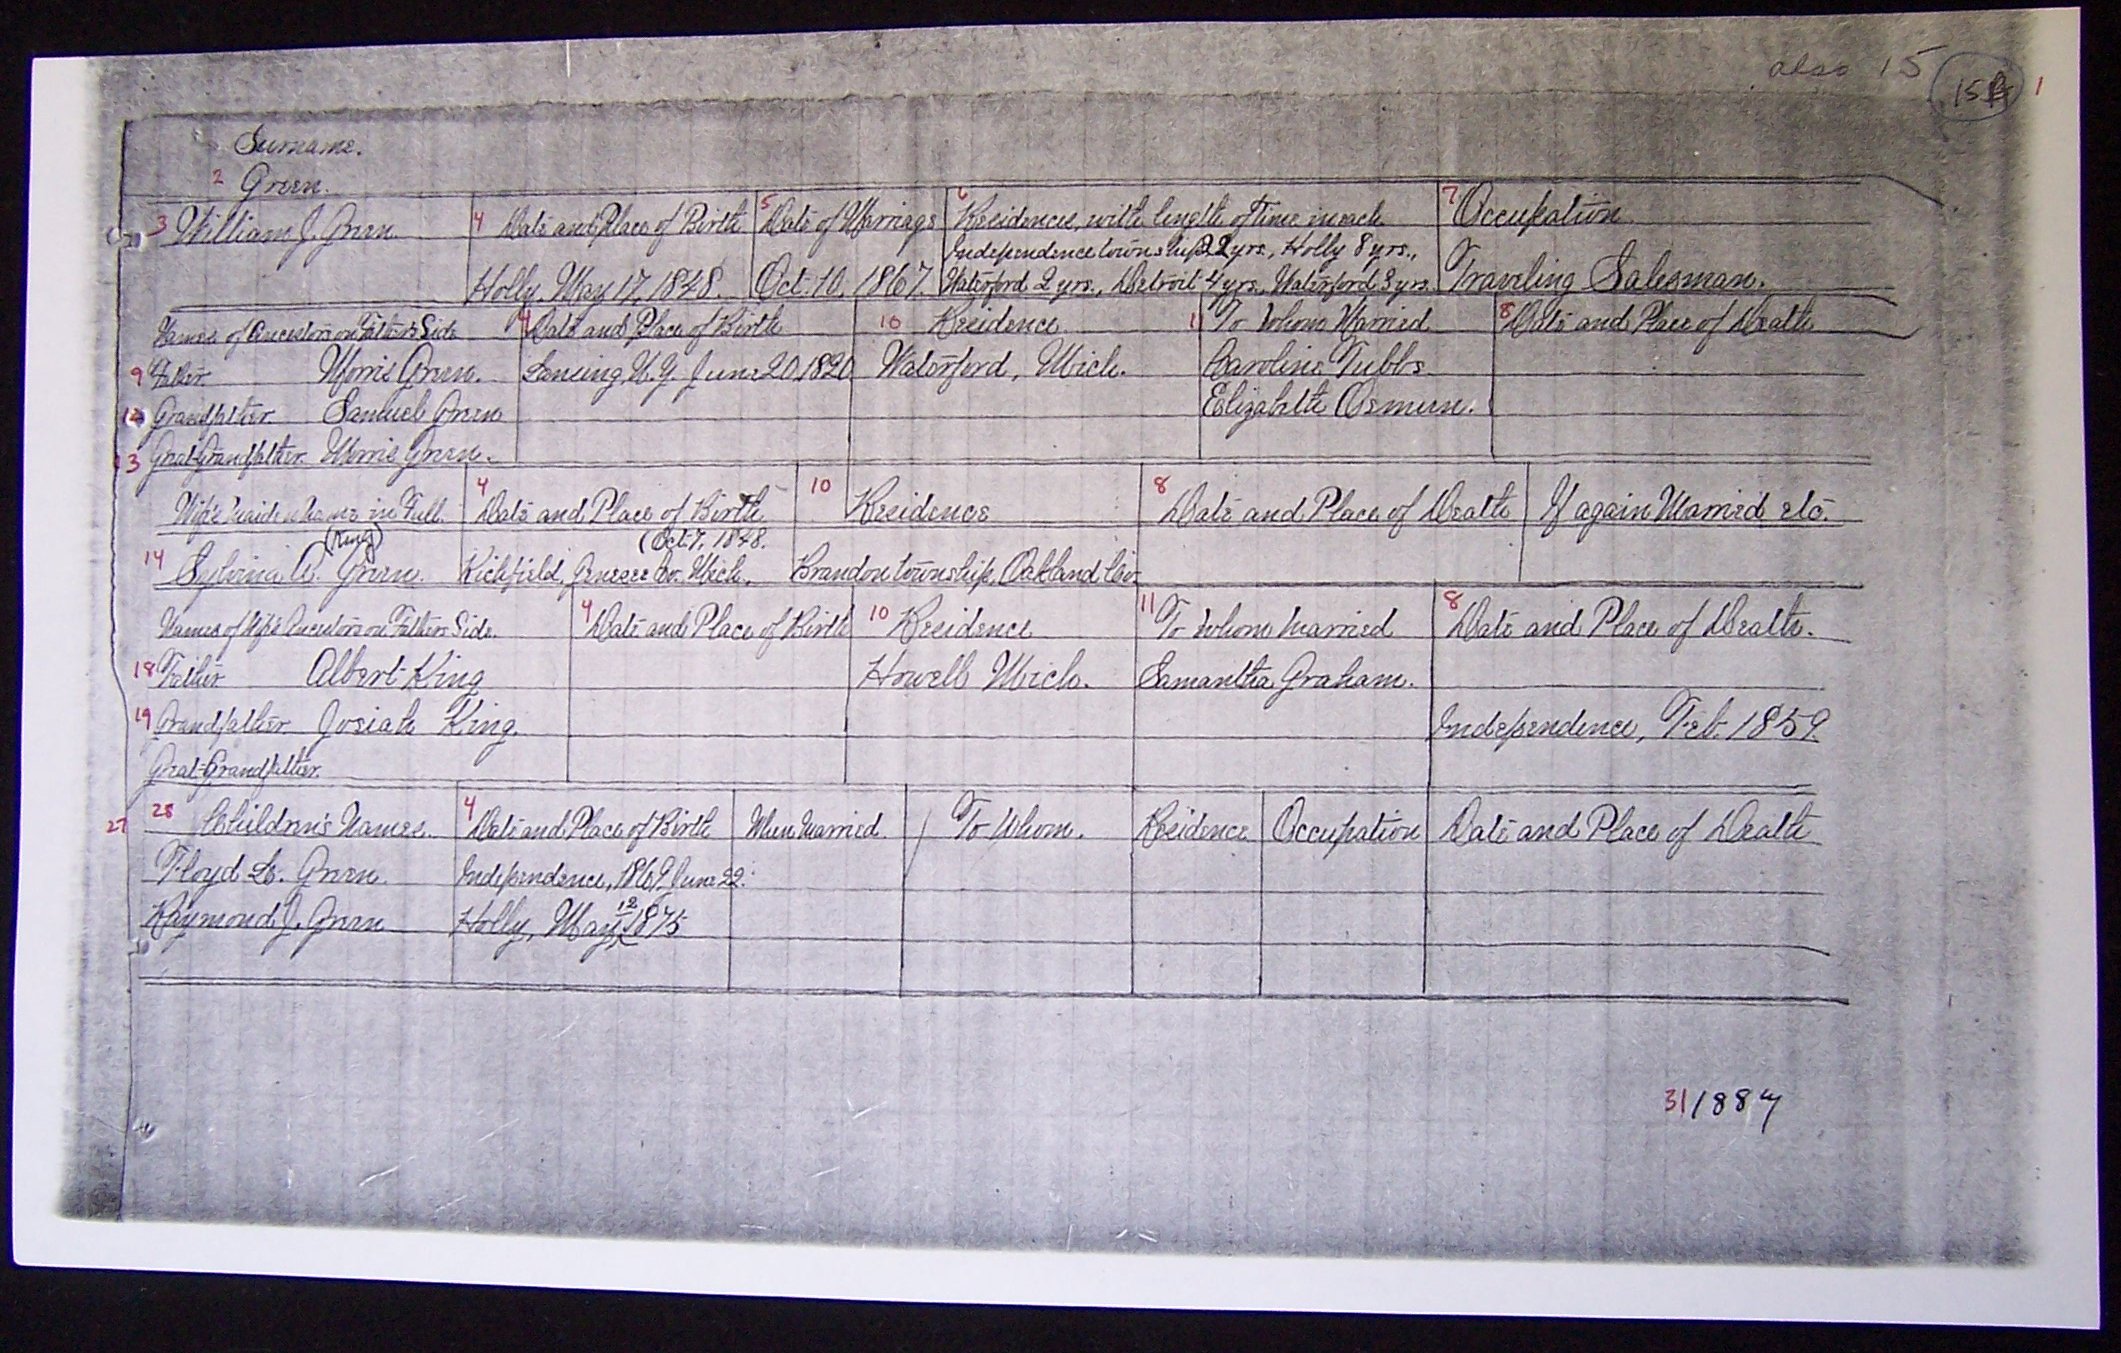 also 15 15A 1
Surname.
2 Green.
3 William J. Green. 4 Date and Place of Birth 5 Date of Marriage 6 Residence, with length of Time in each 7 Occupation
Independence township 22 yrs., Holly 8 yrs.,
Holly, May 17, 1848. Oct. 10, 1867. Waterford 2 yrs., Detroit 4 yrs., Waterford 3 yrs. Traveling Salesman.
Names of Ancestors on Father's Side 4 Date and Place of Birth 10 Residence 11 To Whom Married 8 Date and Place of Death
9 Father Morris Green. Lansing N.Y. June 20 1820 Waterford, Mich. Caroline Tubbs
12 Grandfather Samuel Green Elizabeth Osmun.
13 Great-Grandfather Morris Green.
Wife's maiden name in Full. 4 Date and Place of Birth 10 Residence 8 Date and Place of Death If again Married etc.
(King) (Oct. 7, 1848.
14 Sylvina A. Green. Richfield, Genesee Co. Mich. Brandon township, Oakland Co.
Names of Wife's Ancestors on Father's Side. 4 Date and Place of Birth 10 Residence 11 To Whom Married 8 Date and Place of Death.
18 Father Albert King Howell Mich. Samantha Graham.
19 Grandfather Josiah King. Independence, Feb. 1859.
Great-Grandfather.
27 28 Children's Names. 4 Date and Place of Birth When Married. To Whom. Residence Occupation Date and Place of Death
Floyd L. Green. Independence, 1869, June 22.
Raymond J. Green Holly, May 12 1875
31 1884